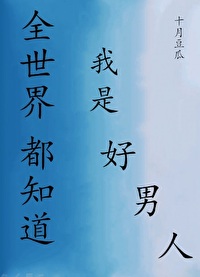 全世界都知道
我是好男人
十月豆瓜